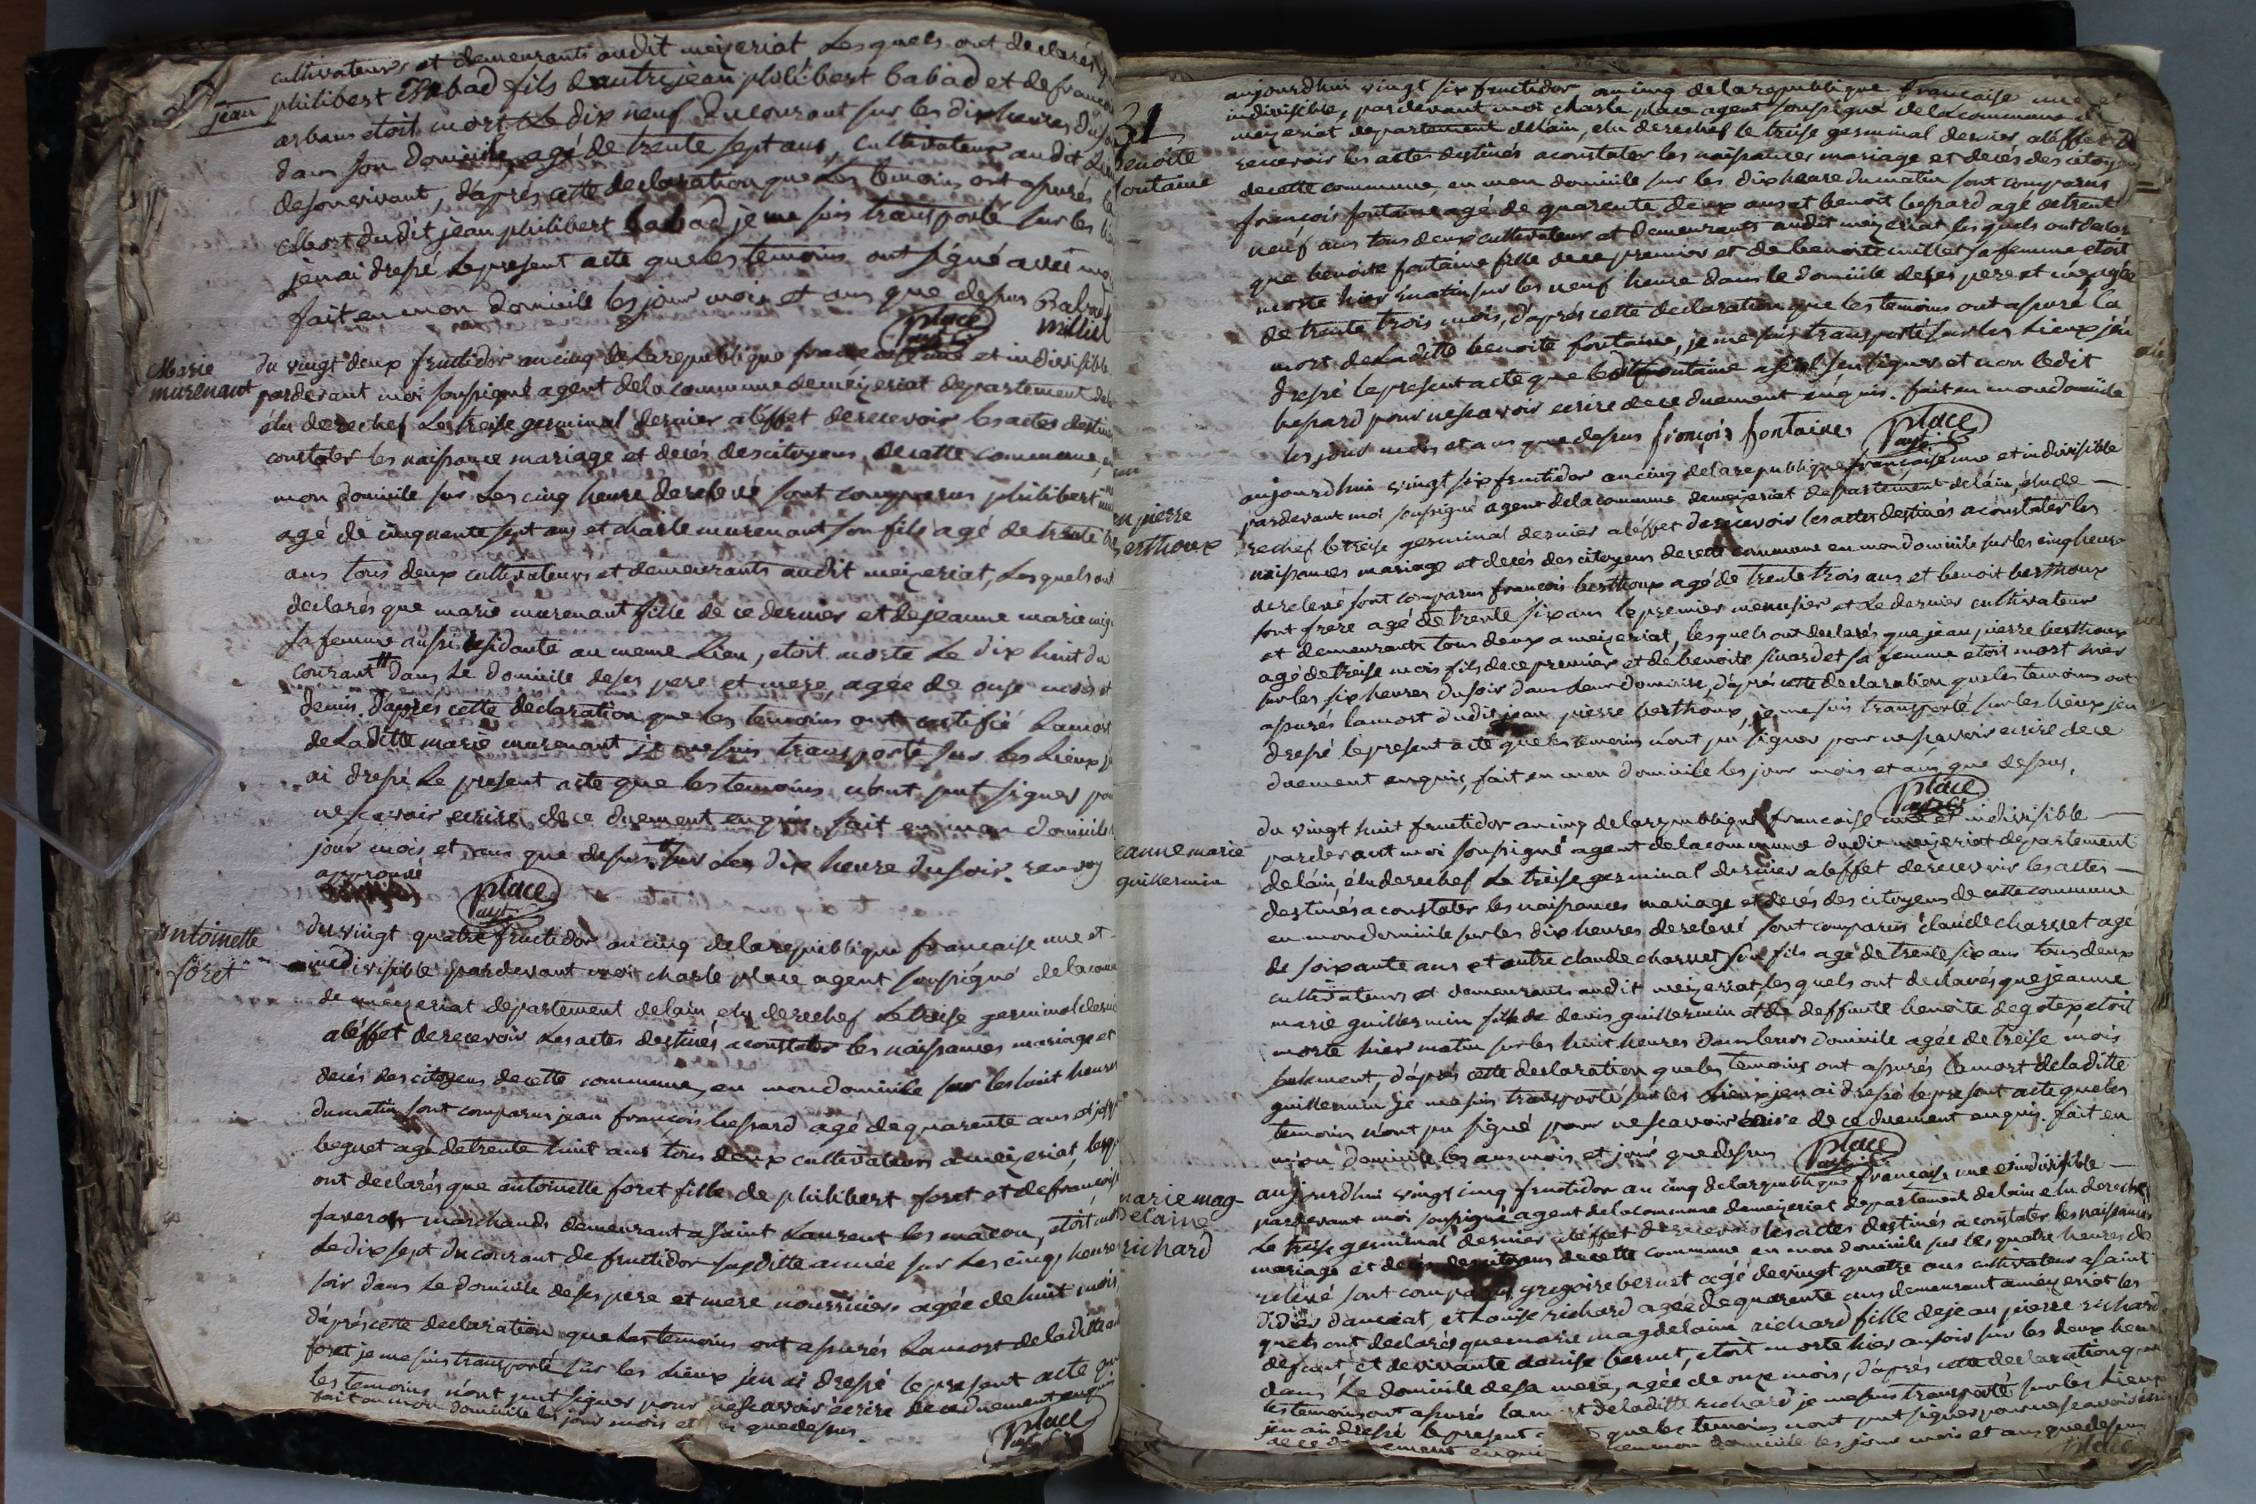 cultivateurs et demeurants audit meizeriat Lesquels ont declarés
jean philibert Babad fils dautre jean philibert babad et de
arbans etoit mort Le dix neuf du courant sur les dix heures du
dans son domicile agé de trente sept ans, cultivateur audit
deson vivant, d'aprés cette declaration que Les temoins ont assurés
Mort dudit jean philibert babad je me suis transporté sur les
jen ai dressé Le present acte que les temoins ont signé avec
fait en mon domicile les jour mois et ans que dessus Babad
place agt milliet
Marie
murenant
du vingt deux fructidor an cinq de La republique francaise une et indivisible
pardevant moi soussigné agent de la commune de meizeriat departement
élu derechef Le treise germinal dernier aléffet de recevoir les actes
constater les naissance mariage et decés des citoyens de cette commune,
mon domicile sur Les cinq heure de relevé sont comparus philibert
agé de cinquente sept ans et charle murenant son fils agé de trente
ans tous deux cultivateurs et demeurants audit meizeriat, Lesquels
declarés que marie murenant fille de ce dernier et de jeanne marie
sa femme aussi residante au meme Lieu, etoit morte Le dix huit du
courant # dans Le domicile de ses pere et mere, agée de onze mois et
demis, d'aprés cette declaration que les temoins ont certifié La mort
de La ditte marie murenant je me suis transporté sur les Lieux
ai dressé Le present acte que les temoins n'ont put signer
ne scavoir ecrire de ce duement enquis fait en mon domicile
jour mois et ans que dessus # sur Les dix heure du soir. renvoy
approuvé
place agt
antoinette
foret
du vingt quatre fructidor an cinq de la republique francaise une et
indivisible pardevant moi charle place agent soussigné de la
de meizeriat departement de lain, elu derechef Le treise germinal
aléffet de recevoir Les actes destinés a constater les naissances mariage et
decés des citoyens de cette commune, en mon domicile sur les huit heures
du matin sont comparus jean francois bessard agé de quarente ans et
beguet agé de trente huit ans tous deux cultivateurs a meizeriat,
ont declarés que antoinette foret fille de philibert foret et de
faverot marchands demeurant a saint Laurent les macon, etoit
Le dix sept du courant de fructidor susditte année sur Les cinq heure
soir dans Le domicile de ses pere et mere nourriciers agée de huit mois,
d'aprés cette declaration que Les temoins ont assurés La mort de la ditte
foret je me suis transporté sur les Lieux jen ai dressé le present acte
les temoins n'ont put signer pour ne scavoir écrire de ce duement enquis
fait en mon domicile les jour mois et que dessus.
place agt
31
benoite
fontaine
aujourdhui vingt six fructidor an cinq de la republique francaise une et
indivisible, pardevant moi charle place agent soussigné de la commune de
meizeriat departement de lain, elu derechef le treise germinal dernier aléffet de
recevoir les actes destinés a constater les naissances mariage et decés des citoyens
de cette commune, en mon domicile sur les dix heure du matin sont comparus
françois fontaine agé de quarente deux ans et benoit bessard agé de trent
neuf ans tous deux cultivateur et demeurants audit meizériat lesquels ont
que benoite fontaine fille de ce premier et de benoite millet sa femme etoit
morte hier matin sur les neuf heure dans le domicile de ses pere et mere agée
de trente trois mois, d'aprés cette declaration que les temoins ont assuré La
mort de La ditte benoite fontaine, je me suis transporté sur les Lieux jén
dressé le present acte que ledit fontaine a signer et non ledit
bessard pour ne scavoir ecrire de ce duement énquis. fait en mon domicile
les jour mois et ans que dessus françois fontaine place agt
pierre
berthoux
aujourdhui vingt six fructidor an cinq de la republique francaise une et indivisible
pardevant moi soussigné agent de la commune de meizeriat departement de lain, élu de
rechef le treise germinal dernier aléffet de recevoir les actes destinés a constater les
naissances mariage et decés des citoyens de cette commune en mon domicile sur les cinq heure
de relevé sont comparus francois berthoux agé de trente trois ans et benoit berthoux
sont frere agé de trente six ans le premier menusier et Le dernier cultivateur
et demeurants tous deux a meizeriat, lesquels ont declarés que jean pierre berthoux
agé de treise mois fils de ce premier et de benoite sa femme etoit mort hier
sur les six heures du soir dans leur domicile, d'aprés cette declaration que les temoins ont
assurés la mort dudit jean pierre berthoux, je me suis transporté sur les lieux jen
dressé le present acte que les temoins n'ont pu signer pour ne scavoir ecrire de ce
duement enquis, fait en mon domicile les jour mois et ans que dessus.
place agt
jeanne marie
guillermin
du vingt huit fructidor an cinq de la republique francaise une et indivisible
pardevant moi soussigné agent de la commune dudit meizeriat departement
de lain, élu derechef Le treise germinal dernier aleffet de recevoir les actes
destinés a constater les naissances mariage et decés des citoyens de cette commune
en mon domicile sur les dix heures de relevé, sont comparus claude charvet agé
de soixante ans et autre claude charvet son fils agé de trente six ans tous deux
cultivateurs et demeurants audit meizeriat, lesquels ont declarés que jeanne
marie guillermin fille de denis guillermin et de deffunte benoite degotex, etoit
morte hier matin sur les huit heures dans leurs domicile agée de treise mois
seulement, d'aprés cette declaration que les temoins ont assurés la mort de la ditte
guillermin je me suis transporté sur les Lieux jen ai dressé le present acte que les
temoins n'ont pu signé pour ne scavoir écrire de ce duement enquis. fait en
mon domicile les ans mois et jour que dessus place agt
marie mag
delaine
richard
aujourdhui vingt cinq fructidor an cinq de la republique francaise une et indivisible
pardevant moi soussigné agent de la commune de meizeriat departement de lain elu derechef
Le treise germinal dernier aléffet de recevoir les actes destinés a constater les naissances
mariage et decés des citoyens de cette commune en mon domicile sur les quatre heures de
relevé sont comparus gregoire bernet agé de vingt quatre ans cultivateur a saint
didier d'auciat, et Louise richard agée de quarente ans demeurant a meizeriat les
quels ont declarés que marie magdelaine richard fille de jean pierre richard
defunt et de vivante denise bernet, etoit morte hier au soir sur les deux heure
dans Le domicile de sa mere, agée de onze mois, d'aprés cette declaration que
les temoins ont assurés la mort de la ditte richard je me suis transporté sur les Lieux
jen ai dressé le present que les temoins n'ont put signer pour ne scavoir
en mon domicile les jour mois et ans que dessus
place